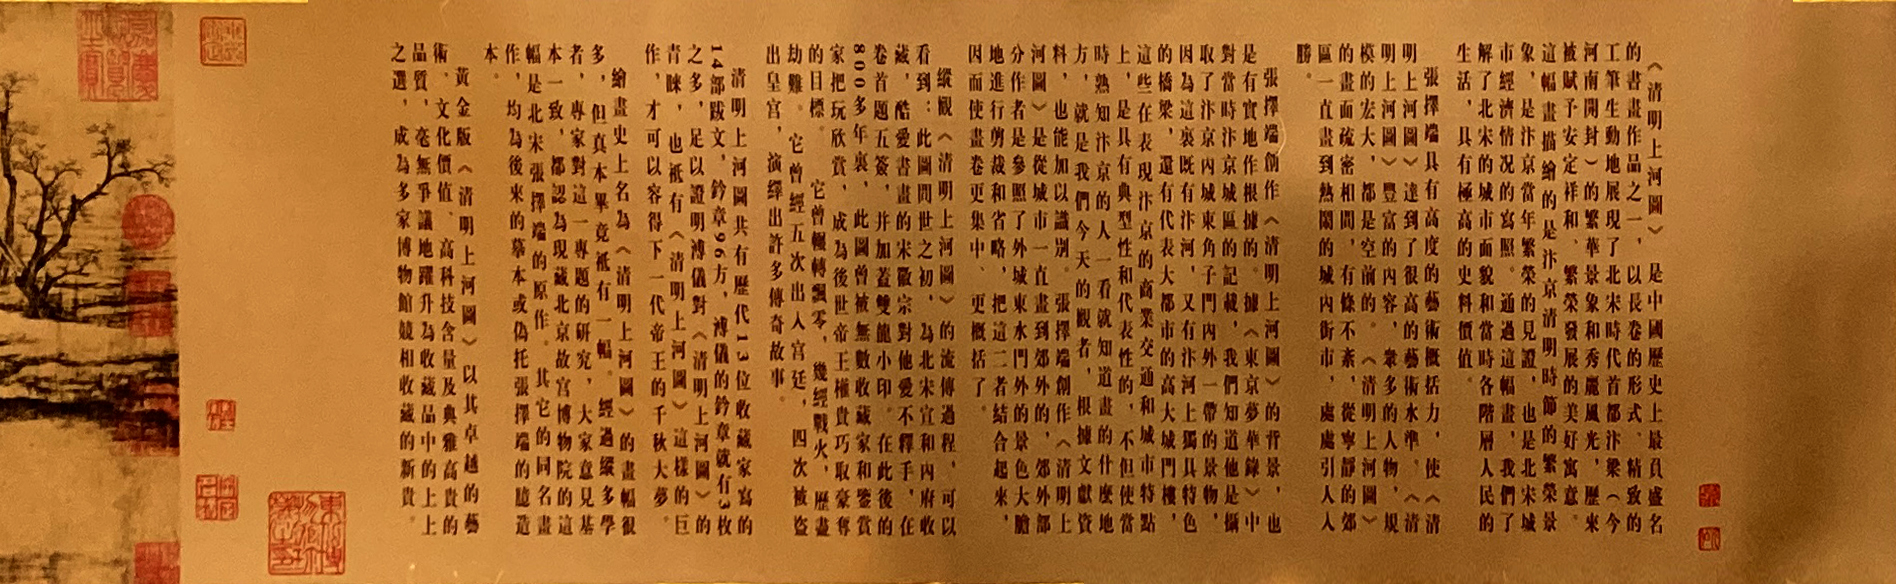 《清明上河圖》是中國歷史上最負盛名
的書畫作品之一，以長卷的形式、精致的
工筆生動地展現了北宋時代首都汴梁（今
河南開封）的繁華景象和秀麗風光，歷來
被賦予安定祥和、繁榮發展的美好寓意。
這幅畫描繪的是汴京清明時節的繁榮景
象，是汴京當年繁榮的見證，也是北宋城
市經濟情况的寫照。通過這幅畫，我們了
解了北宋的城市面貌和當時各階層人民的
生活，具有極高的史料價值。
張擇端具有高度的藝術概括力，使《清
明上河圖》達到了很高的藝術水準。《清
明上河圖》豐富的内容，衆多的人物，規
模的宏大，都是空前的。《清明上河圖》
的畫面疏密相間，有條不紊，從寧靜的郊
區一直畫到熱鬧的城内街市，處處引人入
勝。
張擇端創作《清明上河圖》的背景，也
是有實地作根據的。據《東京夢華錄》中
對當時汴京城區的記載，我們知道他是攝
取了汴京内城東角子門内外一帶的景物，
因為這裏既有汴河，又有汴河上獨具特色
的橋梁，還有代表大都市的高大城門樓，
這些在表現汴京的商業交通和城市特點
上，是具有典型性和代表性的，不但使當
時熟知汴京的人一看就知道畫的什麼地
方，就是我們今天的觀者，根據文獻資
料，也能加以識别。張擇端創作《清明上
河圖》是從城市一直畫到郊外的，郊外部
分作者是參照了外城東水門外的景色大膽
地進行剪裁和省略，把這二者結合起來，
因而使畫卷更集中、更概括了。
縱觀《清明上河圖》的流傳過程，可以
看到：此圖問世之初，為北宋宣和内府收
藏，酷愛書畫的宋徽宗對他愛不釋手，在
卷首題五簽，并加蓋雙龍小印。在此後的
800多年裏，此圖曾被無數收藏家和鑒賞
家把玩欣賞，成為後世帝王權貴巧取豪奪
的目標。它曾輾轉飄零，幾經戰火，歷盡
劫難。它曾經五次出入宮廷，四次被盗
出皇宮，演繹出許多傳奇故事。
清明上河圖共有歷代13位收藏家寫的
14部跋文，鈐章96方，溥儀的鈐章就有3枚
之多，足以證明溥儀對《清明上河圖》的
青睞，也祗有《清明上河圖》這樣的巨
作，才可以容得下一代帝王的千秋大夢。
繪畫史上名為《清明上河圖》的畫幅很
多，但真本畢竟祗有一幅。經過縱多學
者，專家對這一專題的研究，大家意見基
本一致，都認為現藏北京故宫博物院的這
幅是北宋張擇端的原作。其它的同名畫
作，均為後來的摹本或偽托張擇端的臆造
本。
黃金版《清明上河圖》以其卓越的藝
術、文化價值、高科技含量及典雅高貴的
品質，毫無爭議地躍升為收藏品中的上上
之選，成為多家博物館競相收藏的新貴。